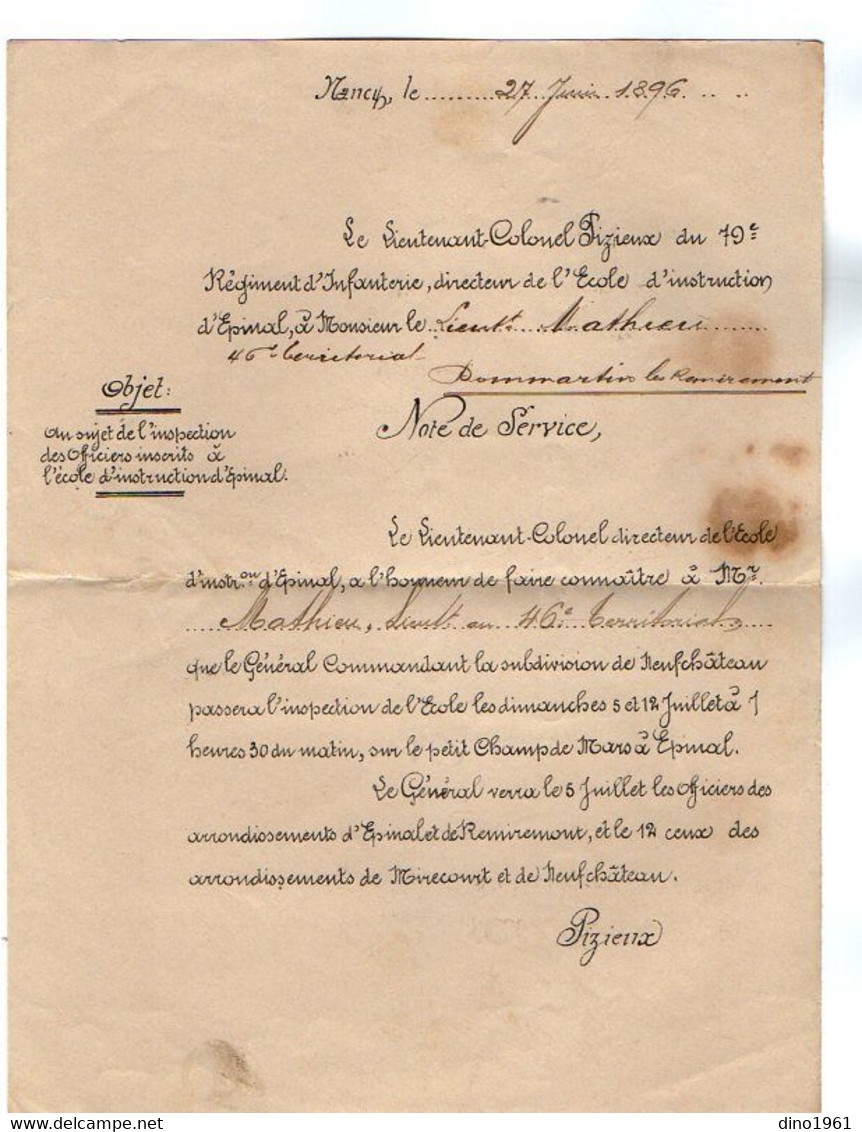 Nancy, le 27 Juin 1896
Le Lieutenant-Colonel Pizieux du 79e
Régiment d'Infanterie, directeur de l'Ecole d'instruction
d'Epinal, à Monsieur le Lieutt Mathieu
46e territorial
Dommartin les Remiremont
Objet:
Au sujet de l'inspection
des Officiers inscrits à
l'école d'instruction d'Epinal.
Note de Service,
Le Lieutenant-Colonel directeur de l'Ecole
d'instr.on d'Epinal, a l'honneur de faire connaître à Mr.
Mathieu, Lieutt au 46e territorial,
que le Général Commandant la subdivision de Neufchâteau
passera l'inspection de l'Ecole les dimanches 5 et 12 Juillet à 7
heures 30 du matin, sur le petit Champ de Mars à Epinal.
Le Général verra le 5 Juillet les Officiers des
arrondissements d'Epinal et de Remiremont, et le 12 ceux des
arrondissements de Mirecourt et de Neufchâteau.
Pizieux
dino1961